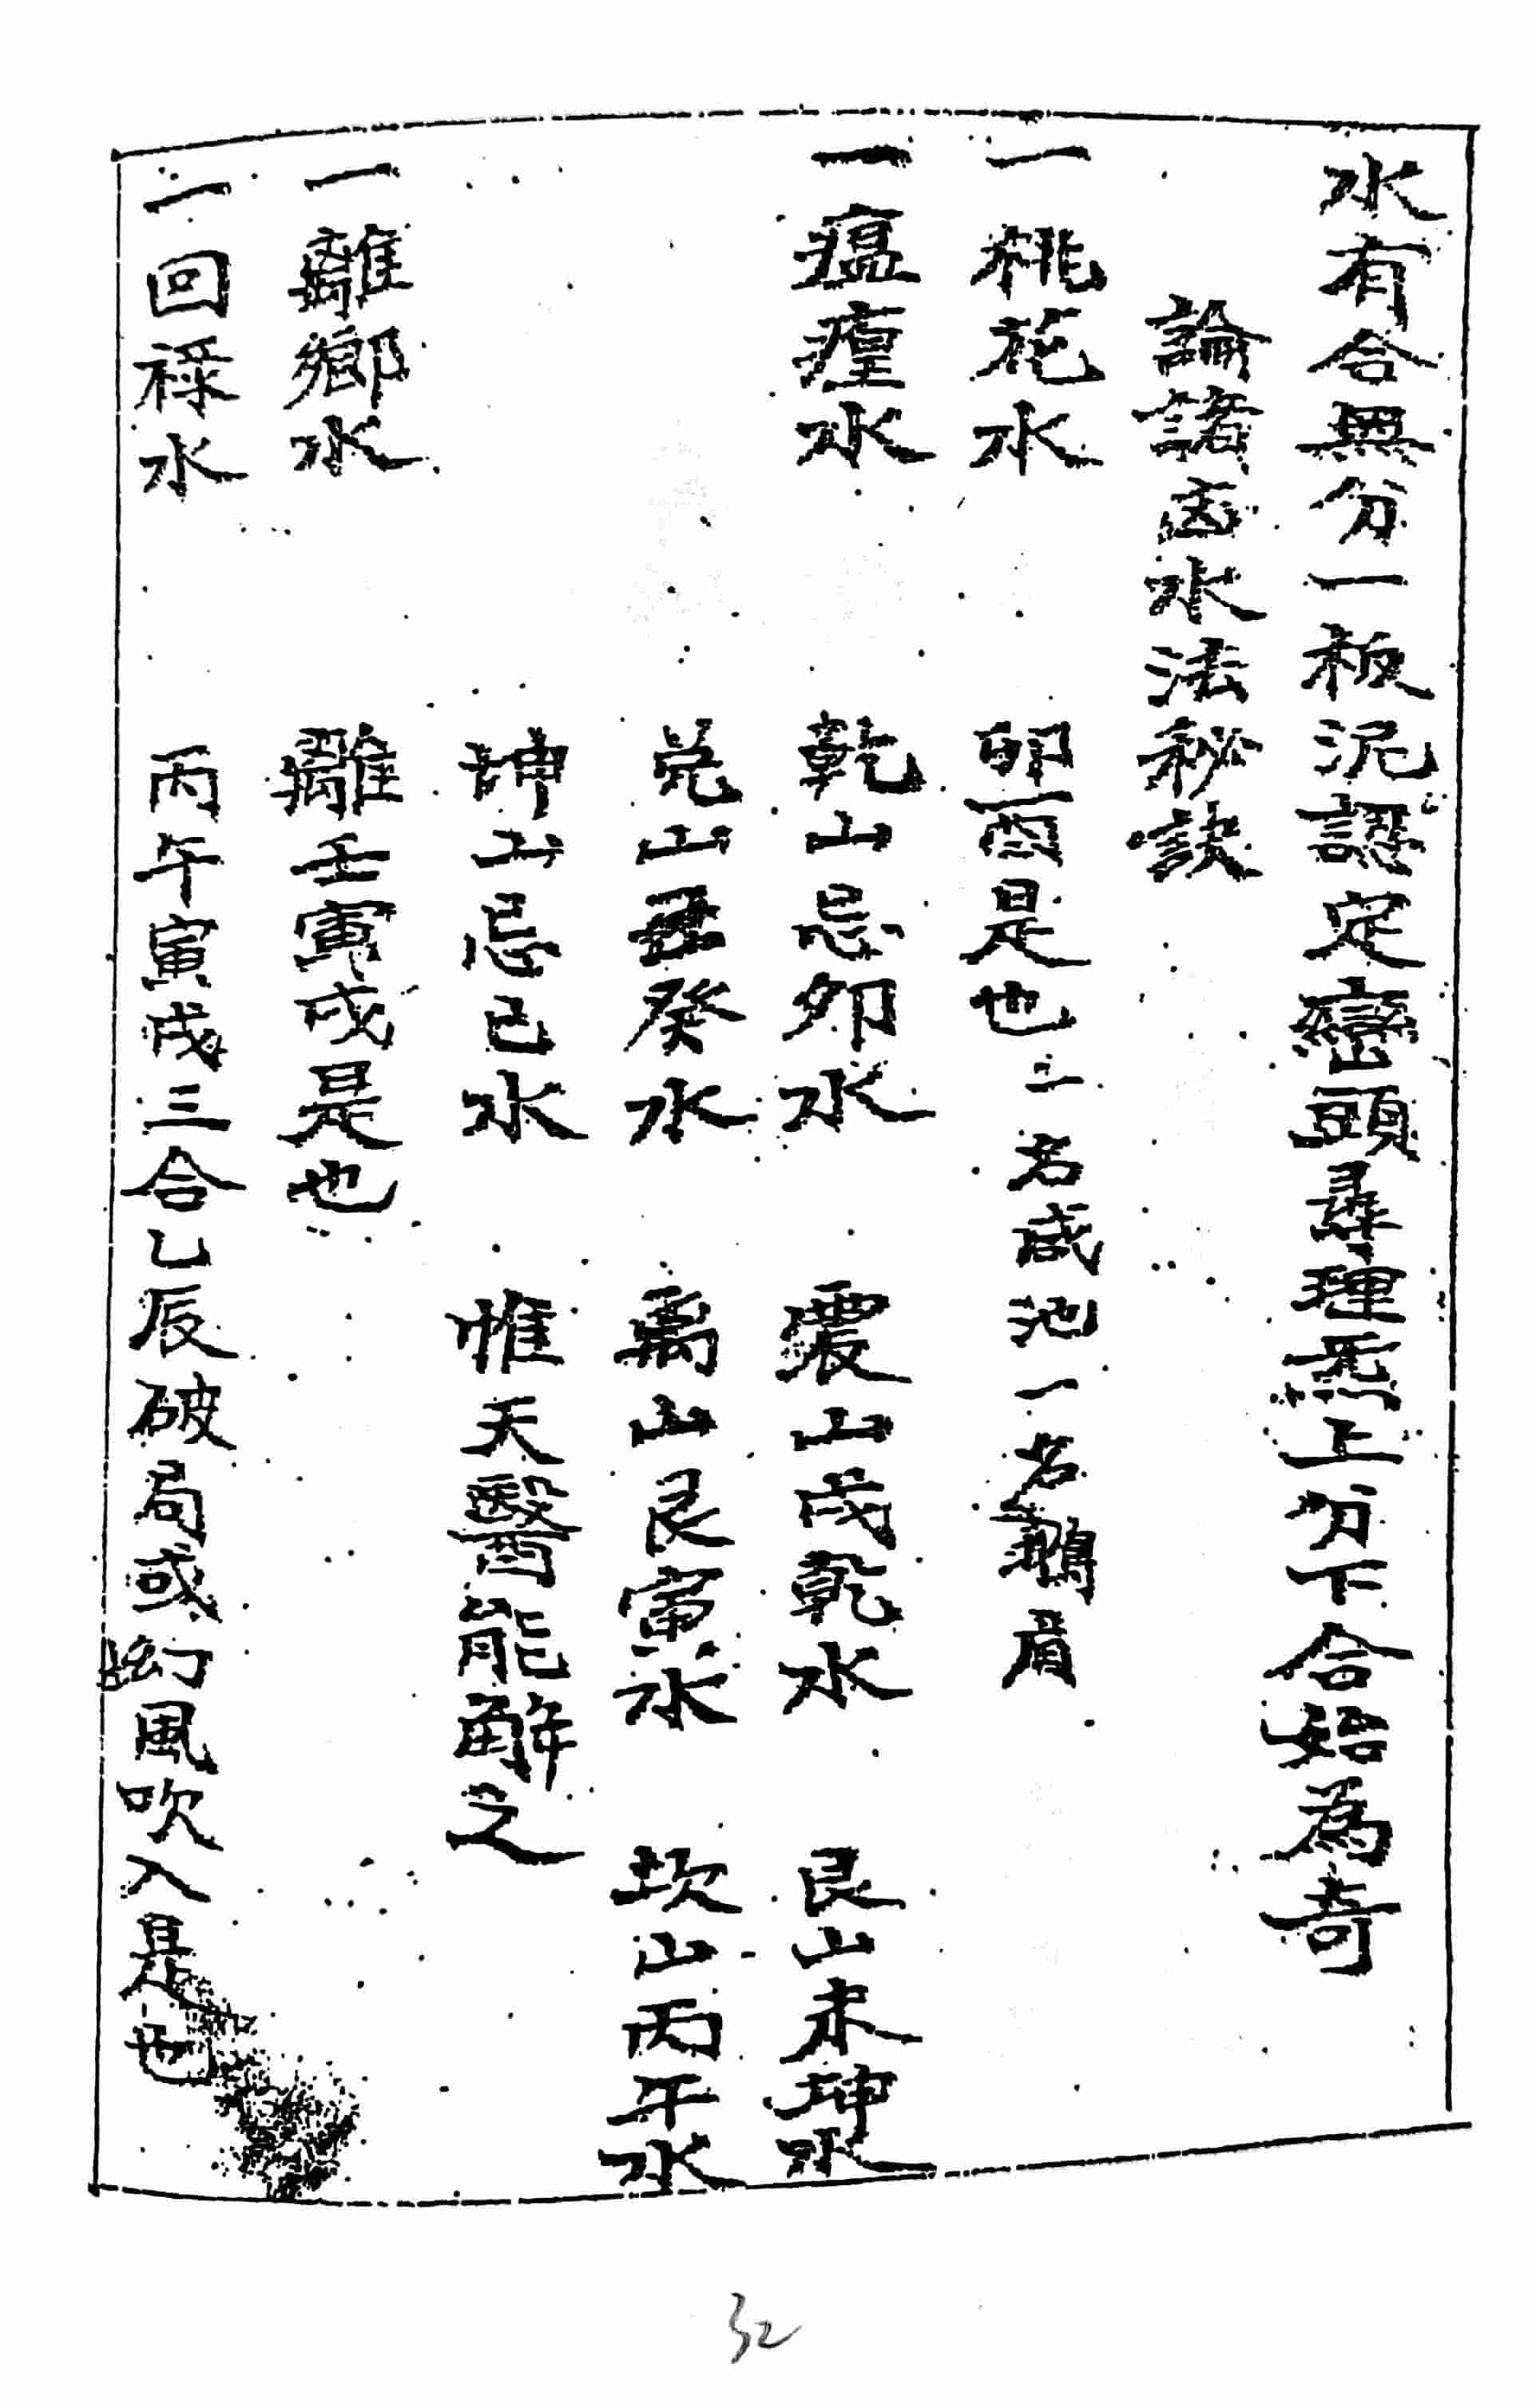 水有合無分一板泥認定巒頭尋理炁上分下合始為奇
論諸凶水法秘訣
一桃花水 卯酉是也 一名咸池一名鵝眉
一瘟㾮水 乾山忌卯水 震山戌乾水 艮山未坤水
兌山丑癸水 离山艮寅水 坎山丙午水
坤山忌巳水 惟天醫能解之
一離鄉水 離壬寅戌是也
一回祿水 丙午寅戌三合乙辰破局或坳風吹入是也
32